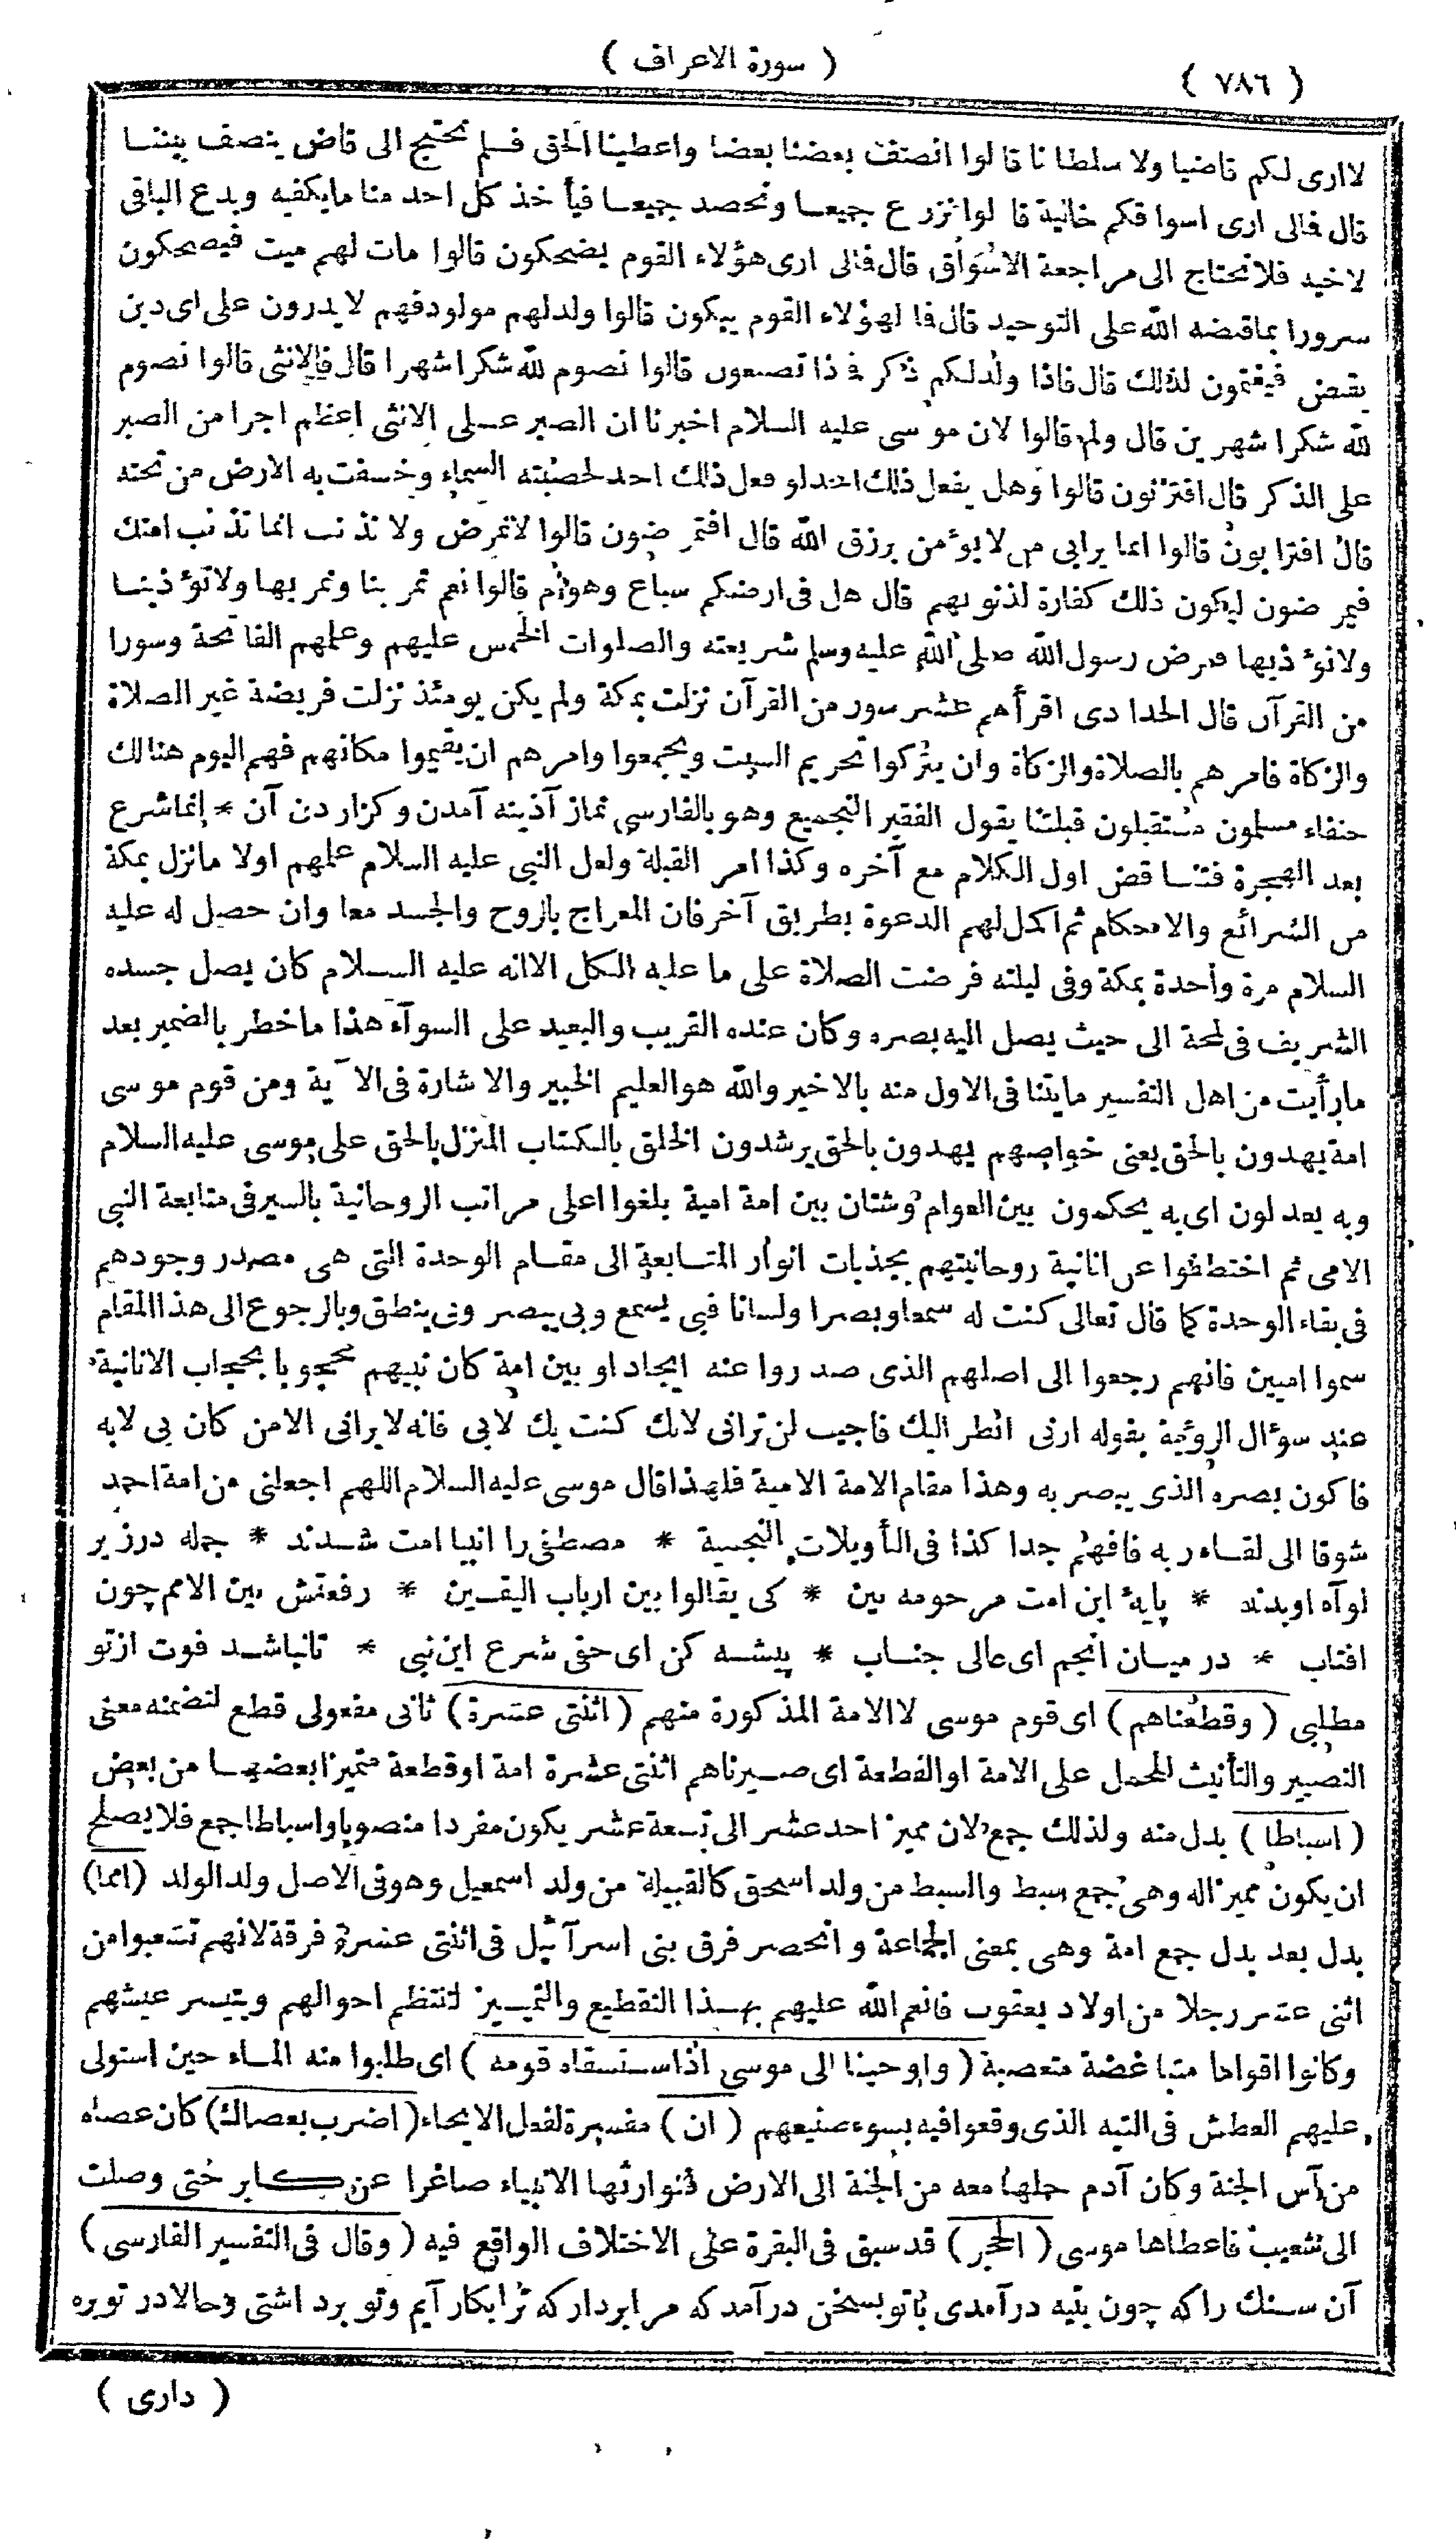 ( سورة الاعراف )
( ٧٨٦ )
لا ارى لكم قاضيا ولا سلطانا قالوا انصف بعضنا بعضا واعطينا الحق فلم نحتج الى قاض ينصف بيننا
قال فمالى ارى اسواقكم خالية قالوا نزرع جميعا ونحصد جميعا فيأخذ كل احد منا مايكفيه ويدع الباقى
لاخيه فلا نحتاج الى مراجعة الاسواق قال فمالى ارى هؤلاء القوم يضحكون قالوا مات لهم ميت فيضحكون
سرورا بماقبضه الله على التوحيد قال فما لهؤلاء القوم يبكون قالوا ولد لهم مولود فهم لا يدرون على اى دين
يقبض فيغتمون لذلك قال فاذا ولد لكم ذكر فماذا تصنعون قالوا نصوم لله شكرا شهرا قال فالانثى قالوا نصوم
لله شكرا شهرين قال ولم قالوا لان موسى عليه السلام اخبرنا ان الصبر على الانثى اعظم اجرا من الصبر
على الذكر قال افتزنون قالوا وهل يفعل ذلك احد لو فعل ذلك احد لحصبته السماء وخسفت به الارض من تحته
قال افترابون قالوا انما يرابى من لا يؤمن برزق الله قال افتمرضون قالوا لا نمرض ولا نذنب انما تذنب امتك
فيمرضون ليكون ذلك كفارة لذنوبهم قال هل فى ارضكم سباع وهوام قالوا نعم تمر بنا ونمر بها ولا تؤذينا
ولا نؤذيها فعرض رسول الله صلى الله عليه وسلم شريعته والصلوات الخمس عليهم وعلمهم الفاتحة وسورا
من القرآن قال الحدادى اقرأهم عشر سور من القرآن نزلت بمكة ولم يكن يومئذ نزلت فريضة غير الصلاة
والزكاة فامرهم بالصلاة والزكاة وان يتركوا تحريم السبت ويجمعوا وامرهم ان يقيموا مكانهم فهم اليوم هنالك
حنفاء مسلمون مستقبلون قبلتنا يقول الفقير التجميع وهو بالفارسى نماز آذينه آمدن وكزاردن آن * انما شرع
بعد الهجرة فتناقض اول الكلام مع آخره وكذا امر القبلة ولعل النبى عليه السلام علمهم اولا مانزل بمكة
من الشرائع والاحكام ثم اكمل لهم الدعوة بطريق آخر فان المعراج بالروح والجسد معا وان حصل له عليه
السلام مرة واحدة بمكة وفى ليلته فرضت الصلاة على ما عليه الكل الاانه عليه السلام كان يصل جسده
الشريف فى لمحة الى حيث يصل اليه بصره وكان عنده القريب والبعيد على السوآء هذا ماخطر بالضمير بعد
مارأيت من اهل التفسير ماينافى الاول منه بالاخير والله هو العليم الخبير والاشارة فى الآية ومن قوم موسى
امة يهدون بالحق يعنى خواصهم يهدون بالحق يرشدون الخلق بالكتاب المنزل بالحق على موسى عليه السلام
وبه يعدلون اى به يحكمون بين العوام وشتان بين امة امية بلغوا اعلى مراتب الروحانية بالسير فى متابعة النبى
الامى ثم اختطفوا عن انانية روحانيتهم بجذبات انوار المتابعة الى مقام الوحدة التى هى مصدر وجودهم
فى بقاء الوحدة كما قال تعالى كنت له سمعا وبصرا ولسانا فبى يسمع وبى يبصر وبى ينطق وبالرجوع الى هذا المقام
سموا اميين فانهم رجعوا الى اصلهم الذى صدروا عنه ايجادا وبين امة كان نبيهم محجوبا بحجاب الانانية
عند سؤال الرؤية بقوله ارنى انظر اليك فاجيب لن ترانى لانك كنت بك لابى فانه لا يرانى الا من كان بى لابه
فاكون بصره الذى يبصر به وهذا مقام الامة الامية فلهذا قال موسى عليه السلام اللهم اجعلنى من امة احمد
شوقا الى لقاء ربه فافهم جدا كذا فى التأويلات النجمية * مصطفى را انبيا امت شدند * جمله در زير
لوآه اوبدند * پايهٔ اين امت مرحومه بين * كى يقالوا بين ارباب اليقين * رفعتش بين الامم چون
افتاب * در ميان انجم اى عالى جناب * پيشه كن اى حقى شرع اين نبى * تانباشد فوت ازتو
مطلبى ( وقطعناهم ) اى قوم موسى لا الامة المذكورة منهم ( اثنتى عشرة ) ثانى مفعولى قطع لتضمنه معنى
التصيير والتأنيث للحمل على الامة او القطعة اى صيرناهم اثنتى عشرة امة او قطعة متميزا بعضها من بعض
( اسباطا ) بدل منه ولذلك جمع لان مميز احد عشر الى تسعة عشر يكون مفردا منصوبا واسباطا جمع فلا يصلح
ان يكون مميزا له وهى جمع سبط والسبط من ولد اسحق كالقبيلة من ولد اسمعيل وهو فى الاصل ولد الولد ( امما )
بدل بعد بدل جمع امة وهى بمعنى الجماعة وانحصر فرق بنى اسرآئيل فى اثنتى عشرة فرقة لانهم تشعبوا من
اثنى عشر رجلا من اولاد يعقوب فانعم الله عليهم بهذا التقطيع والتمييز لتنتظم احوالهم ويتيسر عيشهم
وكانوا اقواما متباغضة متعصبة ( واوحينا الى موسى اذ استسقاه قومه ) اى طلبوا منه الماء حين استولى
عليهم العطش فى التيه الذى وقعوا فيه بسوء صنيعهم ( ان ) مفسرة لفعل الايحاء ( اضرب بعصاك ) كان عصاه
من آس الجنة وكان آدم حملها معه من الجنة الى الارض فتوارثها الانبياء صاغرا عن كابر حتى وصلت
الى شعيب فاعطاها موسى ( الحجر ) قد سبق فى البقرة على الاختلاف الواقع فيه ( وقال فى التفسير الفارسى )
آن سنك راكه چون بتيه درآمدى باتو بسخن درآمد كه مرا بردار كه ترا بكار آيم وتو برداشتى وحالا در توبره
( دارى )